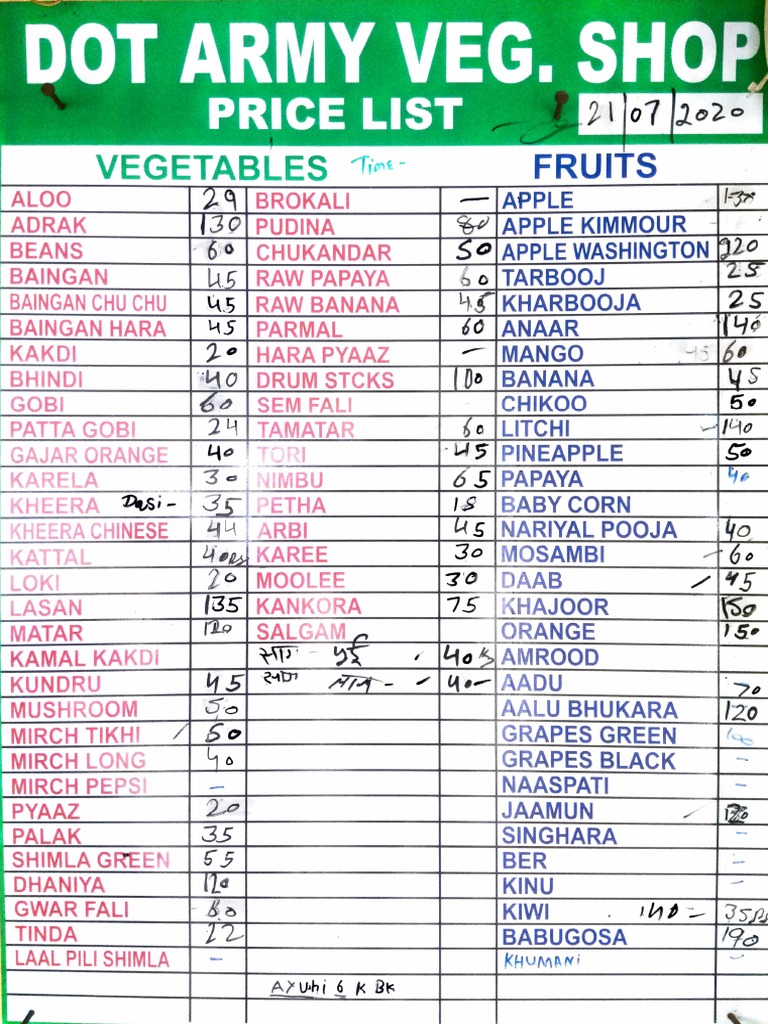 DOT ARMY VEG. SHOP
PRICE LIST
21/07/2020
VEGETABLES Time- FRUITS
ALOO 29 BROKALI — APPLE
ADRAK 130 PUDINA 80 APPLE KIMMOUR
BEANS 60 CHUKANDAR 50 APPLE WASHINGTON 220
BAINGAN 45 RAW PAPAYA 60 TARBOOJ 25
BAINGAN CHU CHU 45 RAW BANANA 45 KHARBOOJA 25
BAINGAN HARA 45 PARMAL 60 ANAAR 140
KAKDI 20 HARA PYAAZ — MANGO 60
BHINDI 40 DRUM STCKS 100 BANANA 45
GOBI 60 SEM FALI CHIKOO 50
PATTA GOBI 24 TAMATAR 60 LITCHI 140
GAJAR ORANGE 40 TORI 45 PINEAPPLE 50
KARELA 30 NIMBU 65 PAPAYA 40
KHEERA Dasi- 35 PETHA 18 BABY CORN
KHEERA CHINESE 44 ARBI 45 NARIYAL POOJA 40
KATTAL KAREE 30 MOSAMBI 60
LOKI 20 MOOLEE 30 DAAB 45
LASAN 135 KANKORA 75 KHAJOOR 150
MATAR 120 SALGAM ORANGE 150
KAMAL KAKDI साग - पुई 40 AMROOD
KUNDRU 45 साग 40- AADU 70
MUSHROOM 50 AALU BHUKARA 120
MIRCH TIKHI 50 GRAPES GREEN
MIRCH LONG 40 GRAPES BLACK -
MIRCH PEPSI - NAASPATI -
PYAAZ 20 JAAMUN
PALAK 35 SINGHARA -
SHIMLA GREEN 55 BER -
DHANIYA 120 KINU -
GWAR FALI 80 KIWI 140=
TINDA 22 BABUGOSA 190
LAAL PILI SHIMLA - KHUMANI -